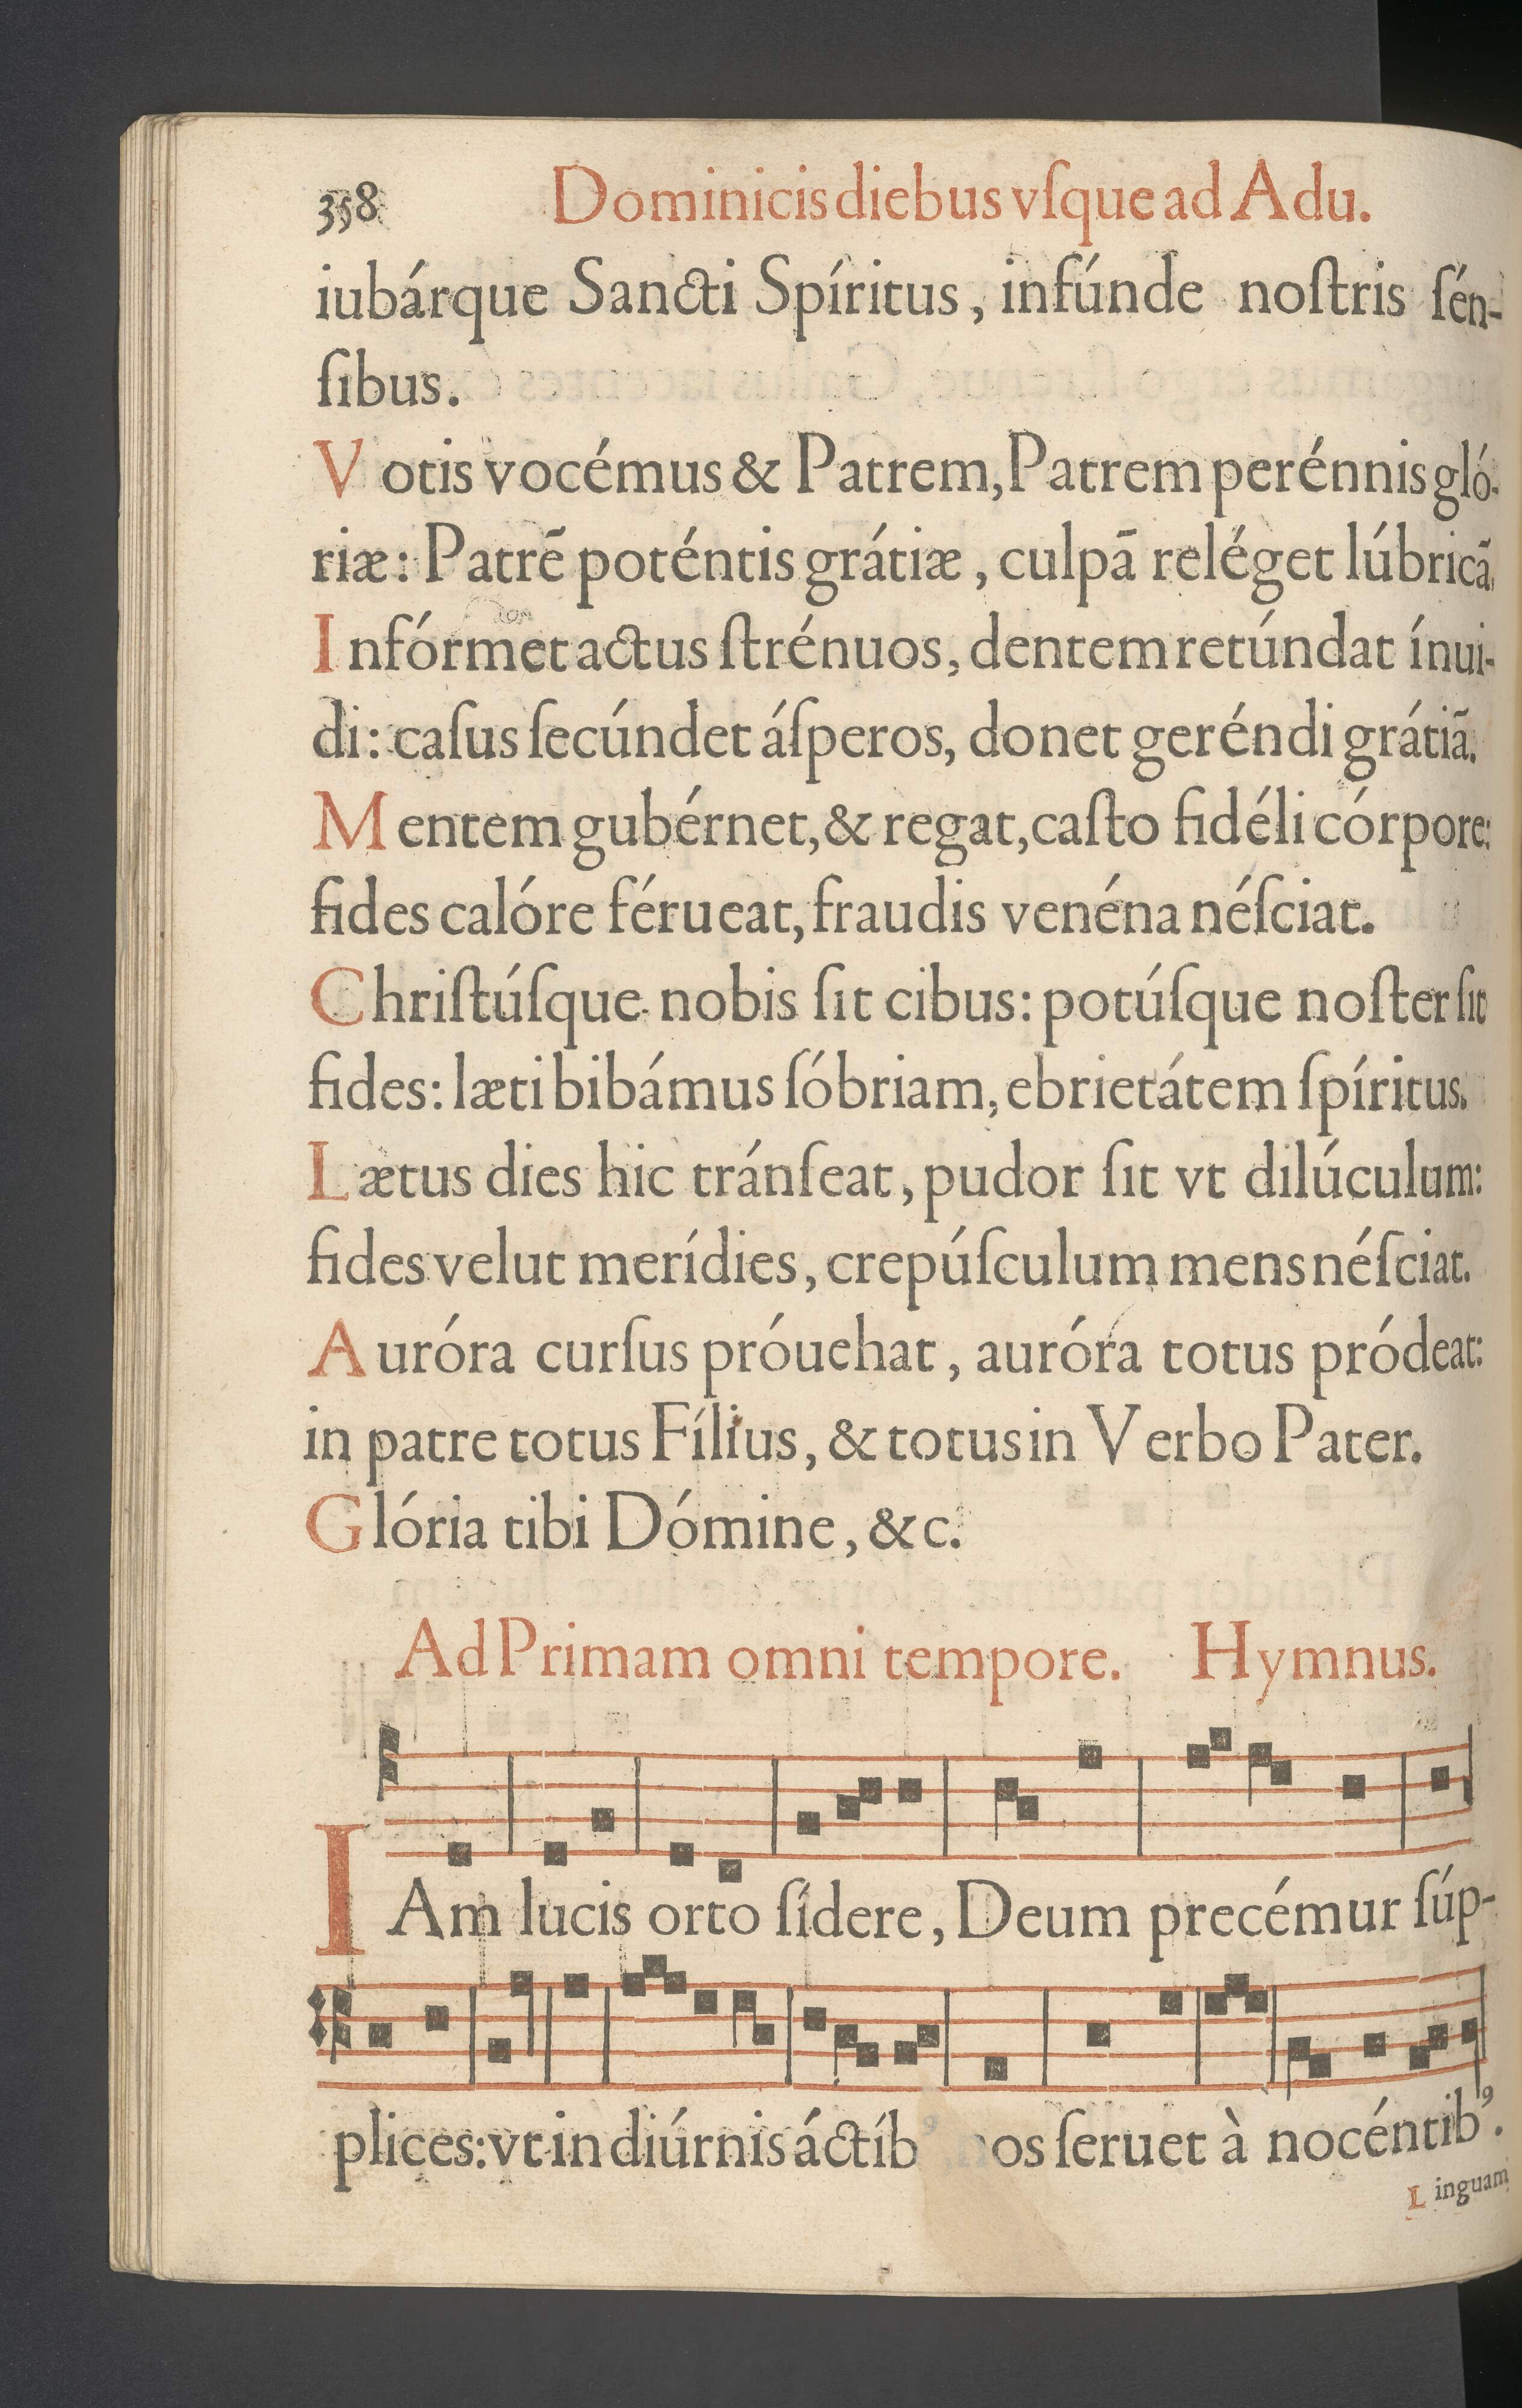 358 Dominicis diebus vſque ad Adu.
iubárque Sancti Spíritus, infúnde noſtris ſén-
ſibus.
Votis vocémus & Patrem, Patrem perénnis gló-
riæ: Patrẽ poténtis grátiæ, culpã reléget lúbricã,
Infórmet actus ſtrénuos, dentem retúndat ínui-
di: caſus ſecúndet áſperos, donet geréndi grátiã.
Mentem gubérnet, & regat, caſto fidéli córpore:
fides calóre férueat, fraudis venéna néſciat.
Chriſtúſque nobis ſit cibus: potúſque noſter ſit
fides: læti bibámus ſóbriam, ebrietátem ſpíritus.
Lætus dies hic tránſeat, pudor ſit vt dilúculum:
fides velut merídies, crepúſculum mens néſciat.
Auróra curſus próuehat, auróra totus pródeat:
in patre totus Fílius, & totus in Verbo Pater.
Glória tibi Dómine, &c.
Ad Primam omni tempore. Hymnus.
IAm lucis orto ſídere, Deum precémur ſúp-
plices: vt in diúrnis áctíbꝰ nos ſeruet à nocéntibꝰ.
Linguam